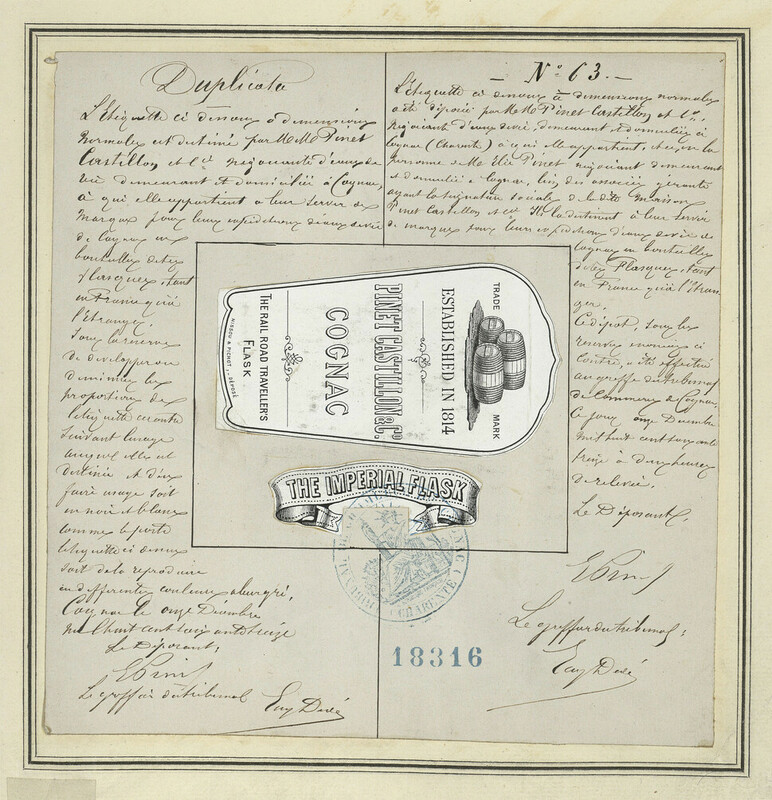 Duplicata
L'Etiquette ci dessous à dimensions
normales est destiné par MM Pinet
Castillon et Cie négociants d'eaux de
vie demeurant et domiciliés à Cognac,
à qui elle appartient à leur servir de
marque pour leurs expéditions d'eaux de vie
de Cognac en
bouteilles dites
flasques, tant
en France qu'à
l'Etranger.
Sous la réserve
de développer ou
diminuer les
proportions de
l'etiquette ci contre
suivant l'usage
auquel elle est
destinée et d'en
faire usage soit
en noir et blanc
comme le porte
l'etiquette ci dessus
soit de la reproduire
en différentes couleurs
Cognac le onze Décembre
mil huit cent soixante treize
Le Déposant,
E Pinet
Le greffier du tribunal
- No 63. -
L'Etiquette ci dessous à dimensions normales
a été déposée par MM Pinet Castillon et Cie,
négociants d'eaux de vie, demeurant et domiciliés à
Cognac (Charente) à qui elle appartient, en la
personne de Mr Elie Pinet négociant demeurant
et domicilié à Cognac, l'un des associés gérants
ayant la signature sociale de la dite maison
Pinet Castillon et Cie. Ils la destinent à leur servir
de marque pour leurs expéditions d'eaux de vie de
Cognac en bouteilles
dites Flasques, tant
en France qu'à l'Etran
ger.
Ce dépot, sous les
réserves énoncées ci
contre, a été effectué
au greffe du tribunal
de Commerce de Cognac,
Ce jour onze Décembre
mil huit cent soixante
treize à deux heures
de relevée.
Le Déposant,
E Pinet
Le greffier du tribunal,
TRADE MARK
ESTABLISHED IN 1814
PINET CASTILLON & Co.
COGNAC
THE RAIL ROAD TRAVELLER'S
FLASK
THE IMPERIAL FLASK
CHARENTE
18316